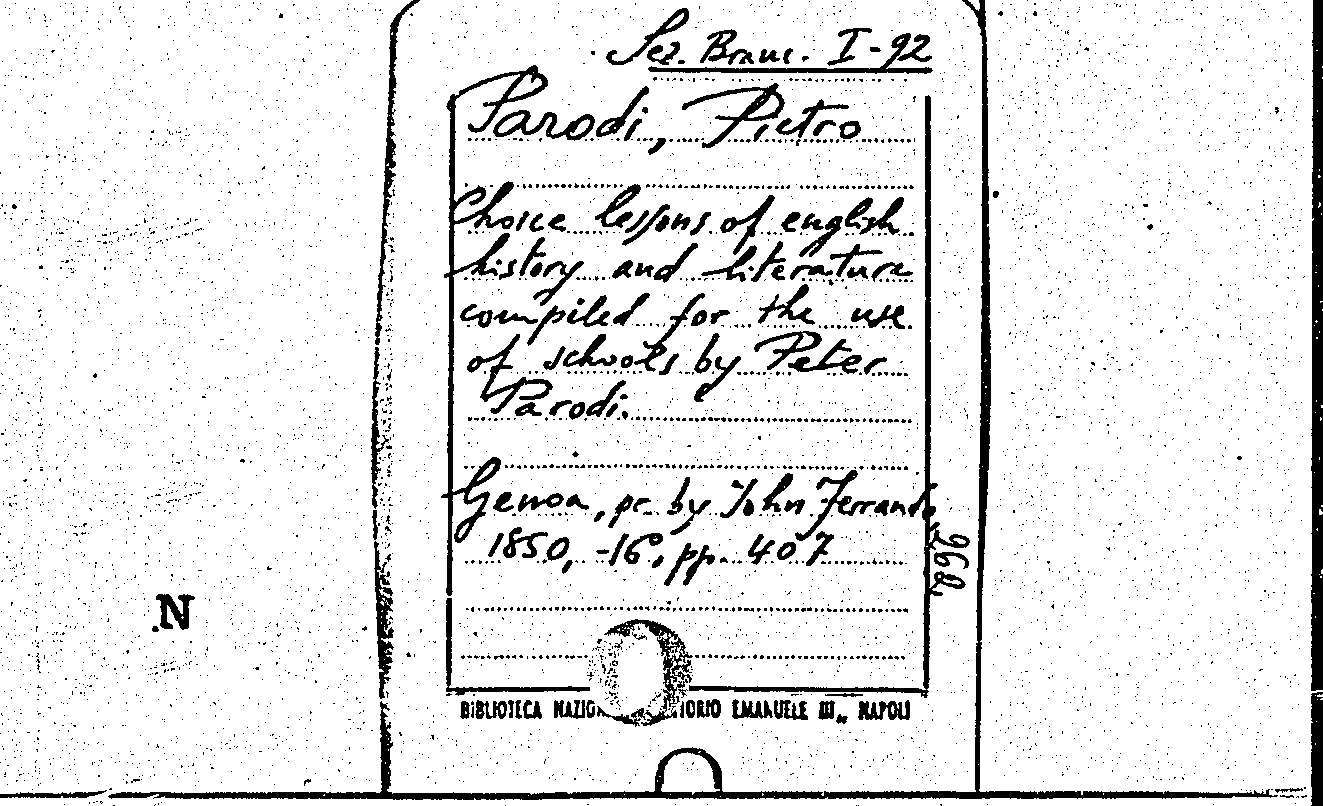 Sez. Branc. I-92
Parodi, Pietro
Choice lessons of english
history and literature
compiled for the use
of schools by Peter
Parodi.
Genoa, pr. by John Ferrando,
1850, -16°, pp. 407
962
N
BIBLIOTECA EMANUELE III„ NAPOLI